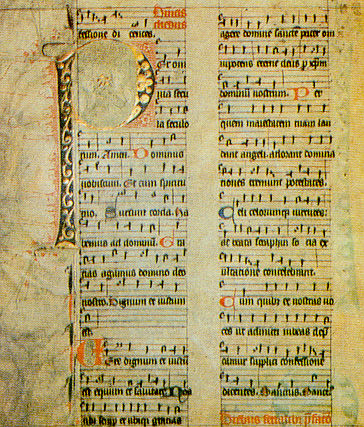 fessione di centes.
Per omi
nia secu
la seculo
rum. Amen. Dominus
uobiscum. Et cum spiritu
tuo. Sursum corda. Ha
bemus ad dominum. Gra
cias agamus domino deo
nostro. Dignum et iustum
est.
Vere dignum et iustu
est equum et salutare. Nos
tibi semp et ubiq gracias
agere domine sancte pater om
nipotens eterne deus p xpm
dominum nostrum. Per
quem maiestatem tuam lau
dant angeli adorant domina
tiones tremunt potestates.
Celi celorumq uirtutes:
ac beata seraphin so cia ex
ultatione concelebrant.
Cum quibz et nostras uo
ces ut admitti iubeas dep
camur supplici confessione
dicentes. Sanctus. Sanct